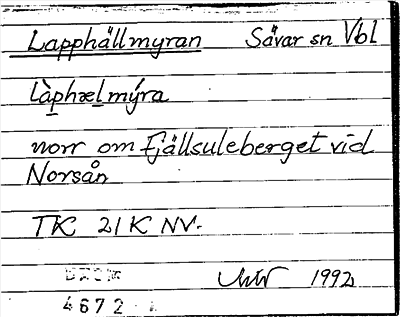 Lapphällmyran Sävar sn Vbl
làphælmýra
norr om Fjällsuleberget vid
Norsån
TK 21K NV.
1992
4672